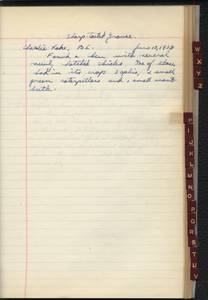 Sharp-tailed Grouse.
Charlie Lake, B.C. June 19, 1938
Found a hen with several
newly hatched chicks. One of them
had in its crop 2 galls, 2 small
green caterpillars and 1 small
W
X
Y
Z
I
J
K
L
M
N
O
P
Q
R
S
T
U
V